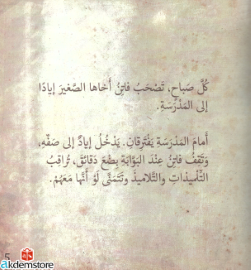 كُلَّ صَباحٍ، تَصْحَبُ فاتِنُ أَخاها الصَّغيرَ إيادًا
إلى المَدْرَسَةِ.
أمامَ المَدْرَسَةِ يَفْتَرِقانِ. يَدْخُلُ إيادٌ إلى صَفِّهِ،
وَتَقِفُ فاتِنُ عِنْدَ البَوّابَةِ بِضْعَ دَقائِقَ، تُراقِبُ
التِّلْميذاتِ والتَّلاميذَ وتَتَمَنّى لَوْ أَنَّها مَعَهُمْ.
5
akdemstore